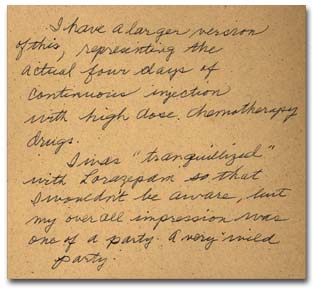 I have a larger version
of this, representing the
actual four days of
continuous injection
with high dose chemotherapy
drugs.
I was "tranquillized"
with Lorazepam so that
I wouldn't be aware, but
my over all impression was
one of a party. A very wild
party.